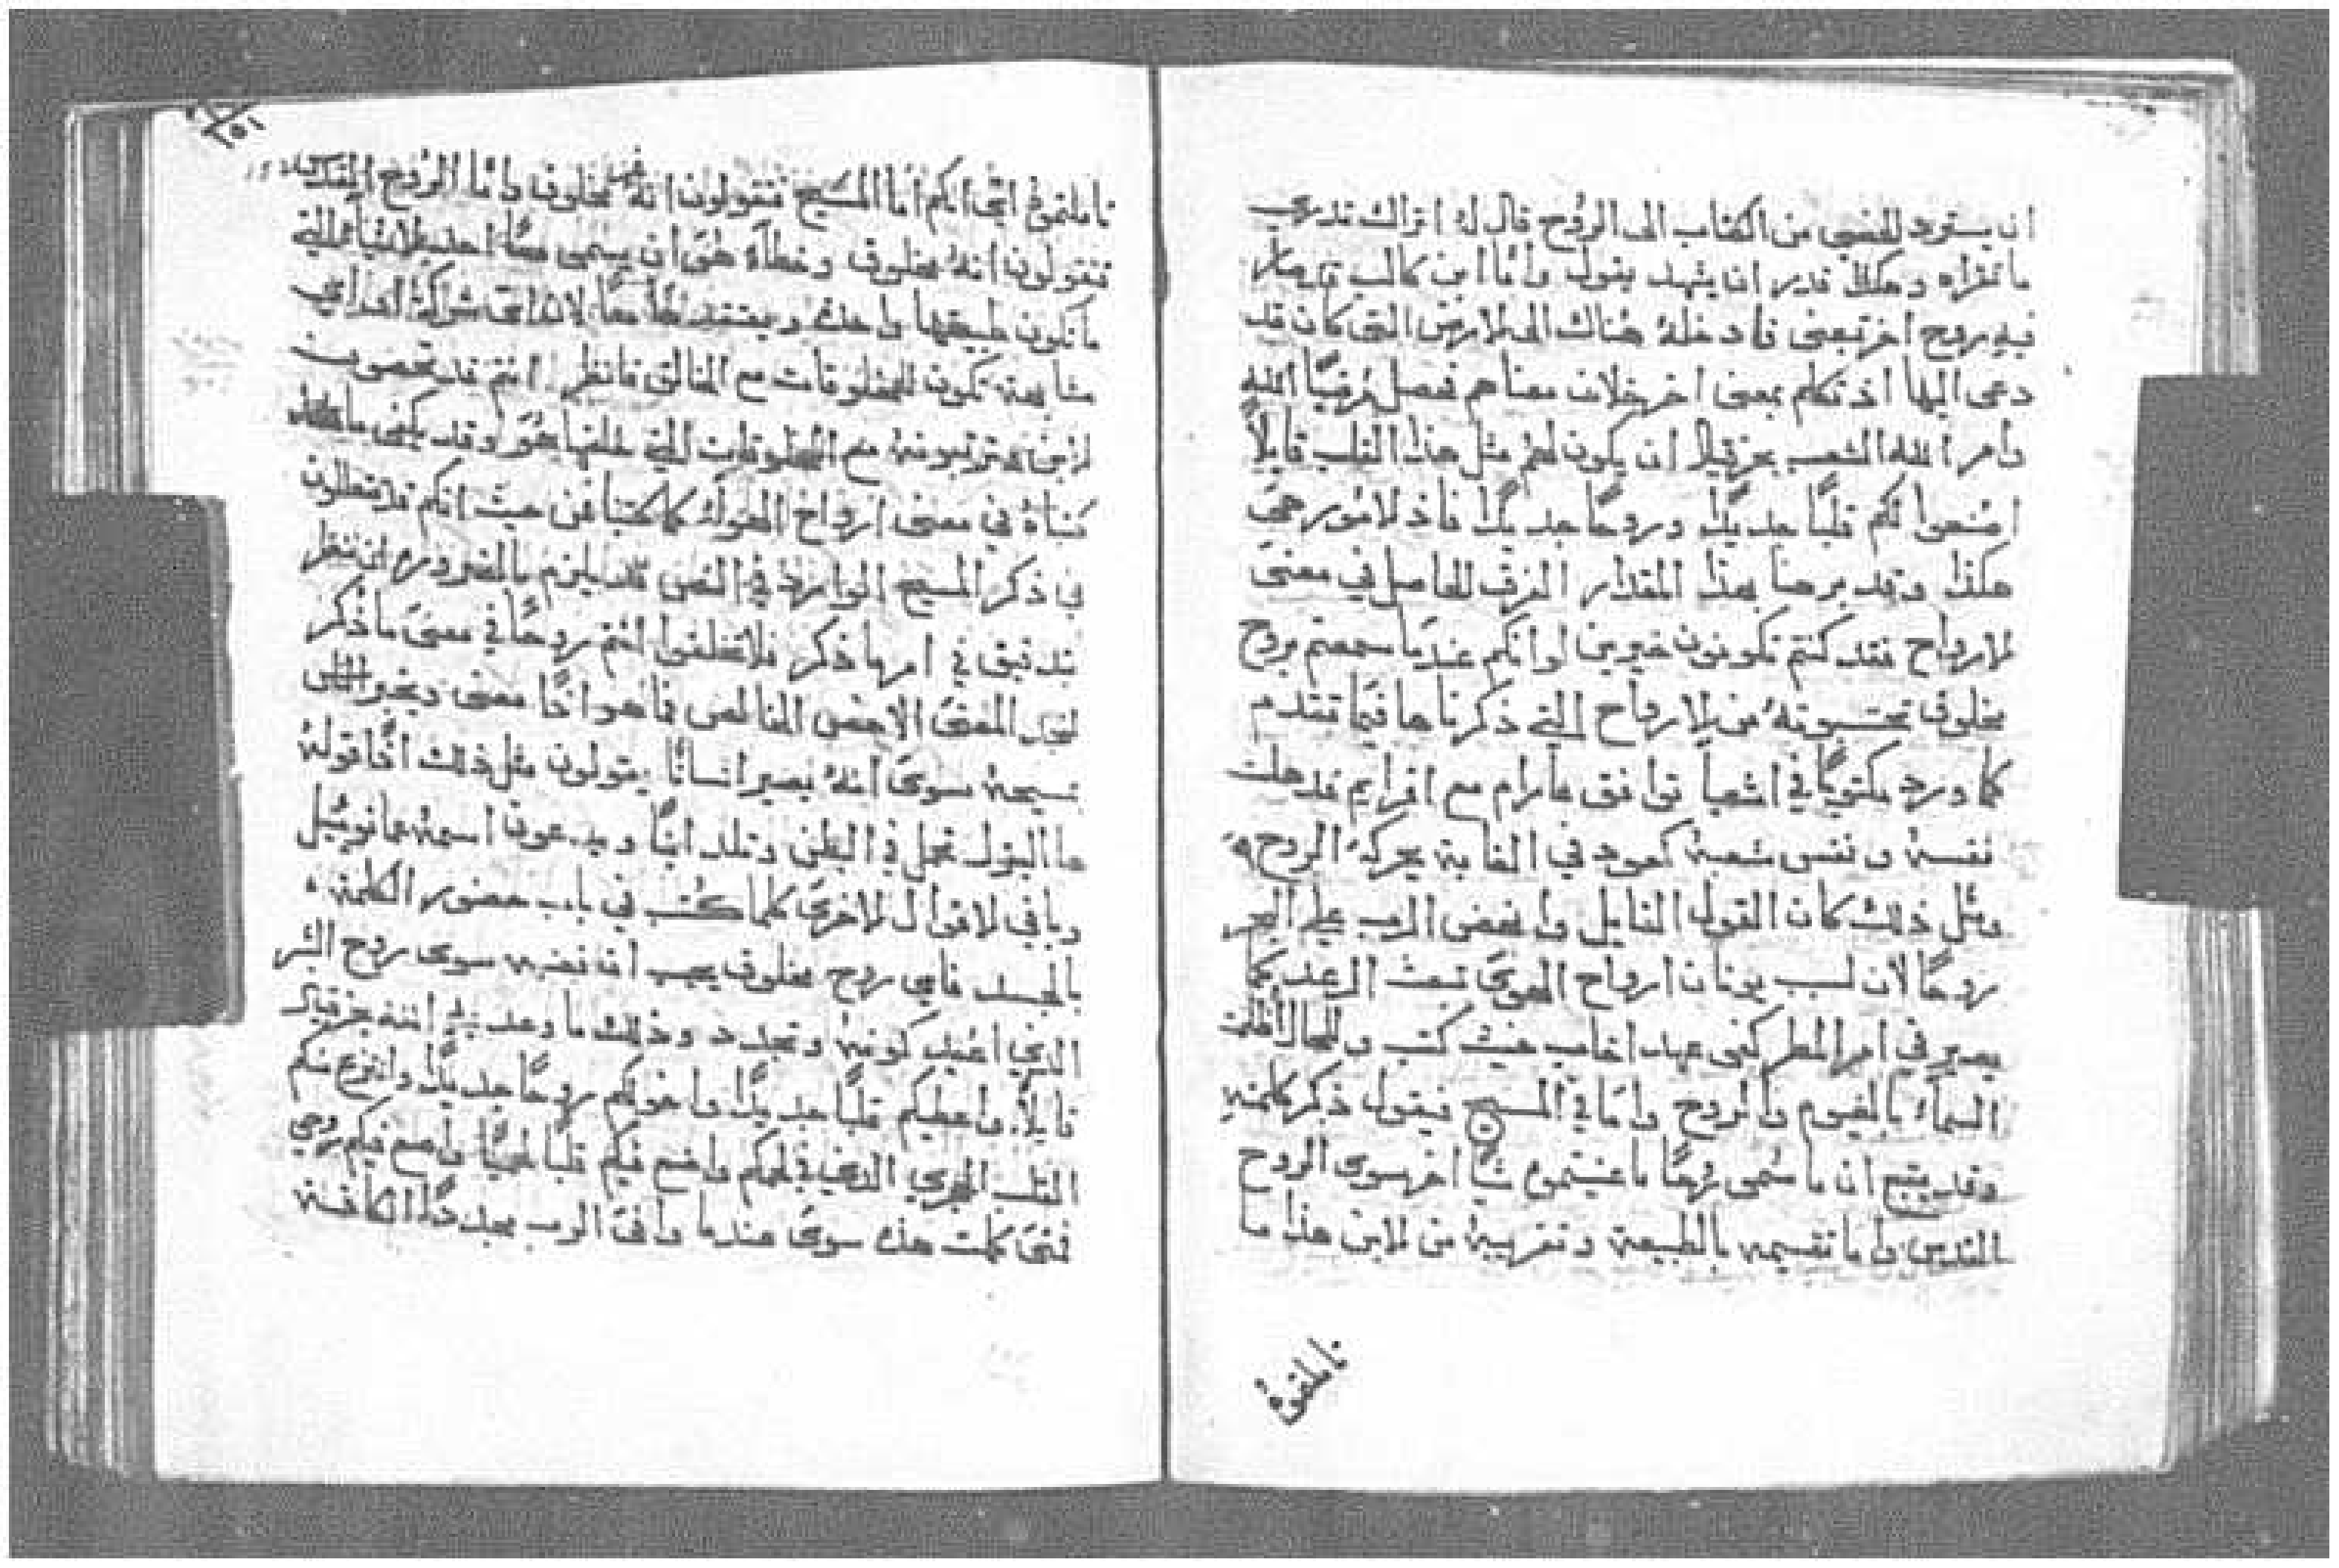 ان يسترد للخصي من الكتاب الى الروح قال له اتراك تدري
ما تقراه وهكذا قدر ان يشهد بقول واما ابن كالب قد صار
فيه روح اخر بمعنى فادخله هناك الى الارض التي كان قد
دعى اليها اذ تكلم بمعنى اخر خلاف معناهم فحصل مرضيًا الله
وامر الله الشعب بحزقيال ان يكون لهم مثل هذا القلب قايلاً
اصنعوا لكم قلبًا جديدًا وروحًا جديدًا فاذ الامور هي
هكذا وقد برهنا بهذا المقدار الفرق الحاصل في معنى
الارواح فقد كنتم تكونون خيرين لو انكم عندما سمعتم بروح
مخلوق تحتسبونه من الارواح التي ذكرناها فيما تقدم
كما ورد مكتوبًا في اشعيا توافق مارام مع افرايم قد هلت
نفسه ونفس شعبه كعود في الغابة يحركه الروح
ومثل ذلك كان القول القايل وانهض الرب على البحر
روحًا لان لسبب يونان ارواح الهوى تبعث الرعد كما
يصير في امر المطر كفى عهد اخاب حيث كتب وللحال اظلمت
السماء بالغيوم والروح واما في المسيح فيقول ذكر كلمته
وقد يتبع ان ما سمى روحًا ما عنيتموه شيًا اخر سوى الروح
القدس واما تقسيمه بالطبيعة وتغريبه من الابن هذا ما
تاملتموه
تاملتموه اعني انكم اما المسيح فتقولون انه غير مخلوق واما الروح القدس
فتقولون انه مخلوق وخطاء هو ان يسمى معًا احد الاشياء التي
ما تكون طبيعتها واحدة ويعتقد بها معًا لانه اي شركة او اي
مشابهة تكون للمخلوقات مع الخالق فانظر انتم قد تحصون
الابن وترتبونه مع المخلوقات التي خلقها هو وقد يكفي ما قد
كتبناه في معنى ارواح الهواء كما كتبنا فمن حيث انكم قد تتعللون
في ذكر المسيح الوارد في النص فقد يلزم بالضرورة ان ننظر
بتدقيق في امر ما ذكر فلا تختلقوا انتم روحًا في معنى ما ذكر
المعنى الاخص الخالص فما هو اخًا معنى ويخبر الناس
مسيحه سوى انه يصير انسانًا يقولون مثل ذلك امّا قوله
ها البتول تحبل في البطن وتلد ابنًا ويدعون اسمه عمانوئيل
وباقي الاقوال الاخرى كلما كُتب في باب حضور الكلمة
بالجسد فاي روح مخلوق يجب ان نفهمه سوى روح البشر
الذي اعيد كونه وتجدد وذلك ما وعد به الله بحزقيال
قايلاً واعطيكم قلبًا جديدًا واخولكم روحًا جديدًا وانتزع منكم
القلب الحجري الذي في لحمكم واضع فيكم قلبًا لحميًا واضع فيكم روحي
فمتى كملت هذه سوى عندما وافى الرب مجددًا الكافة